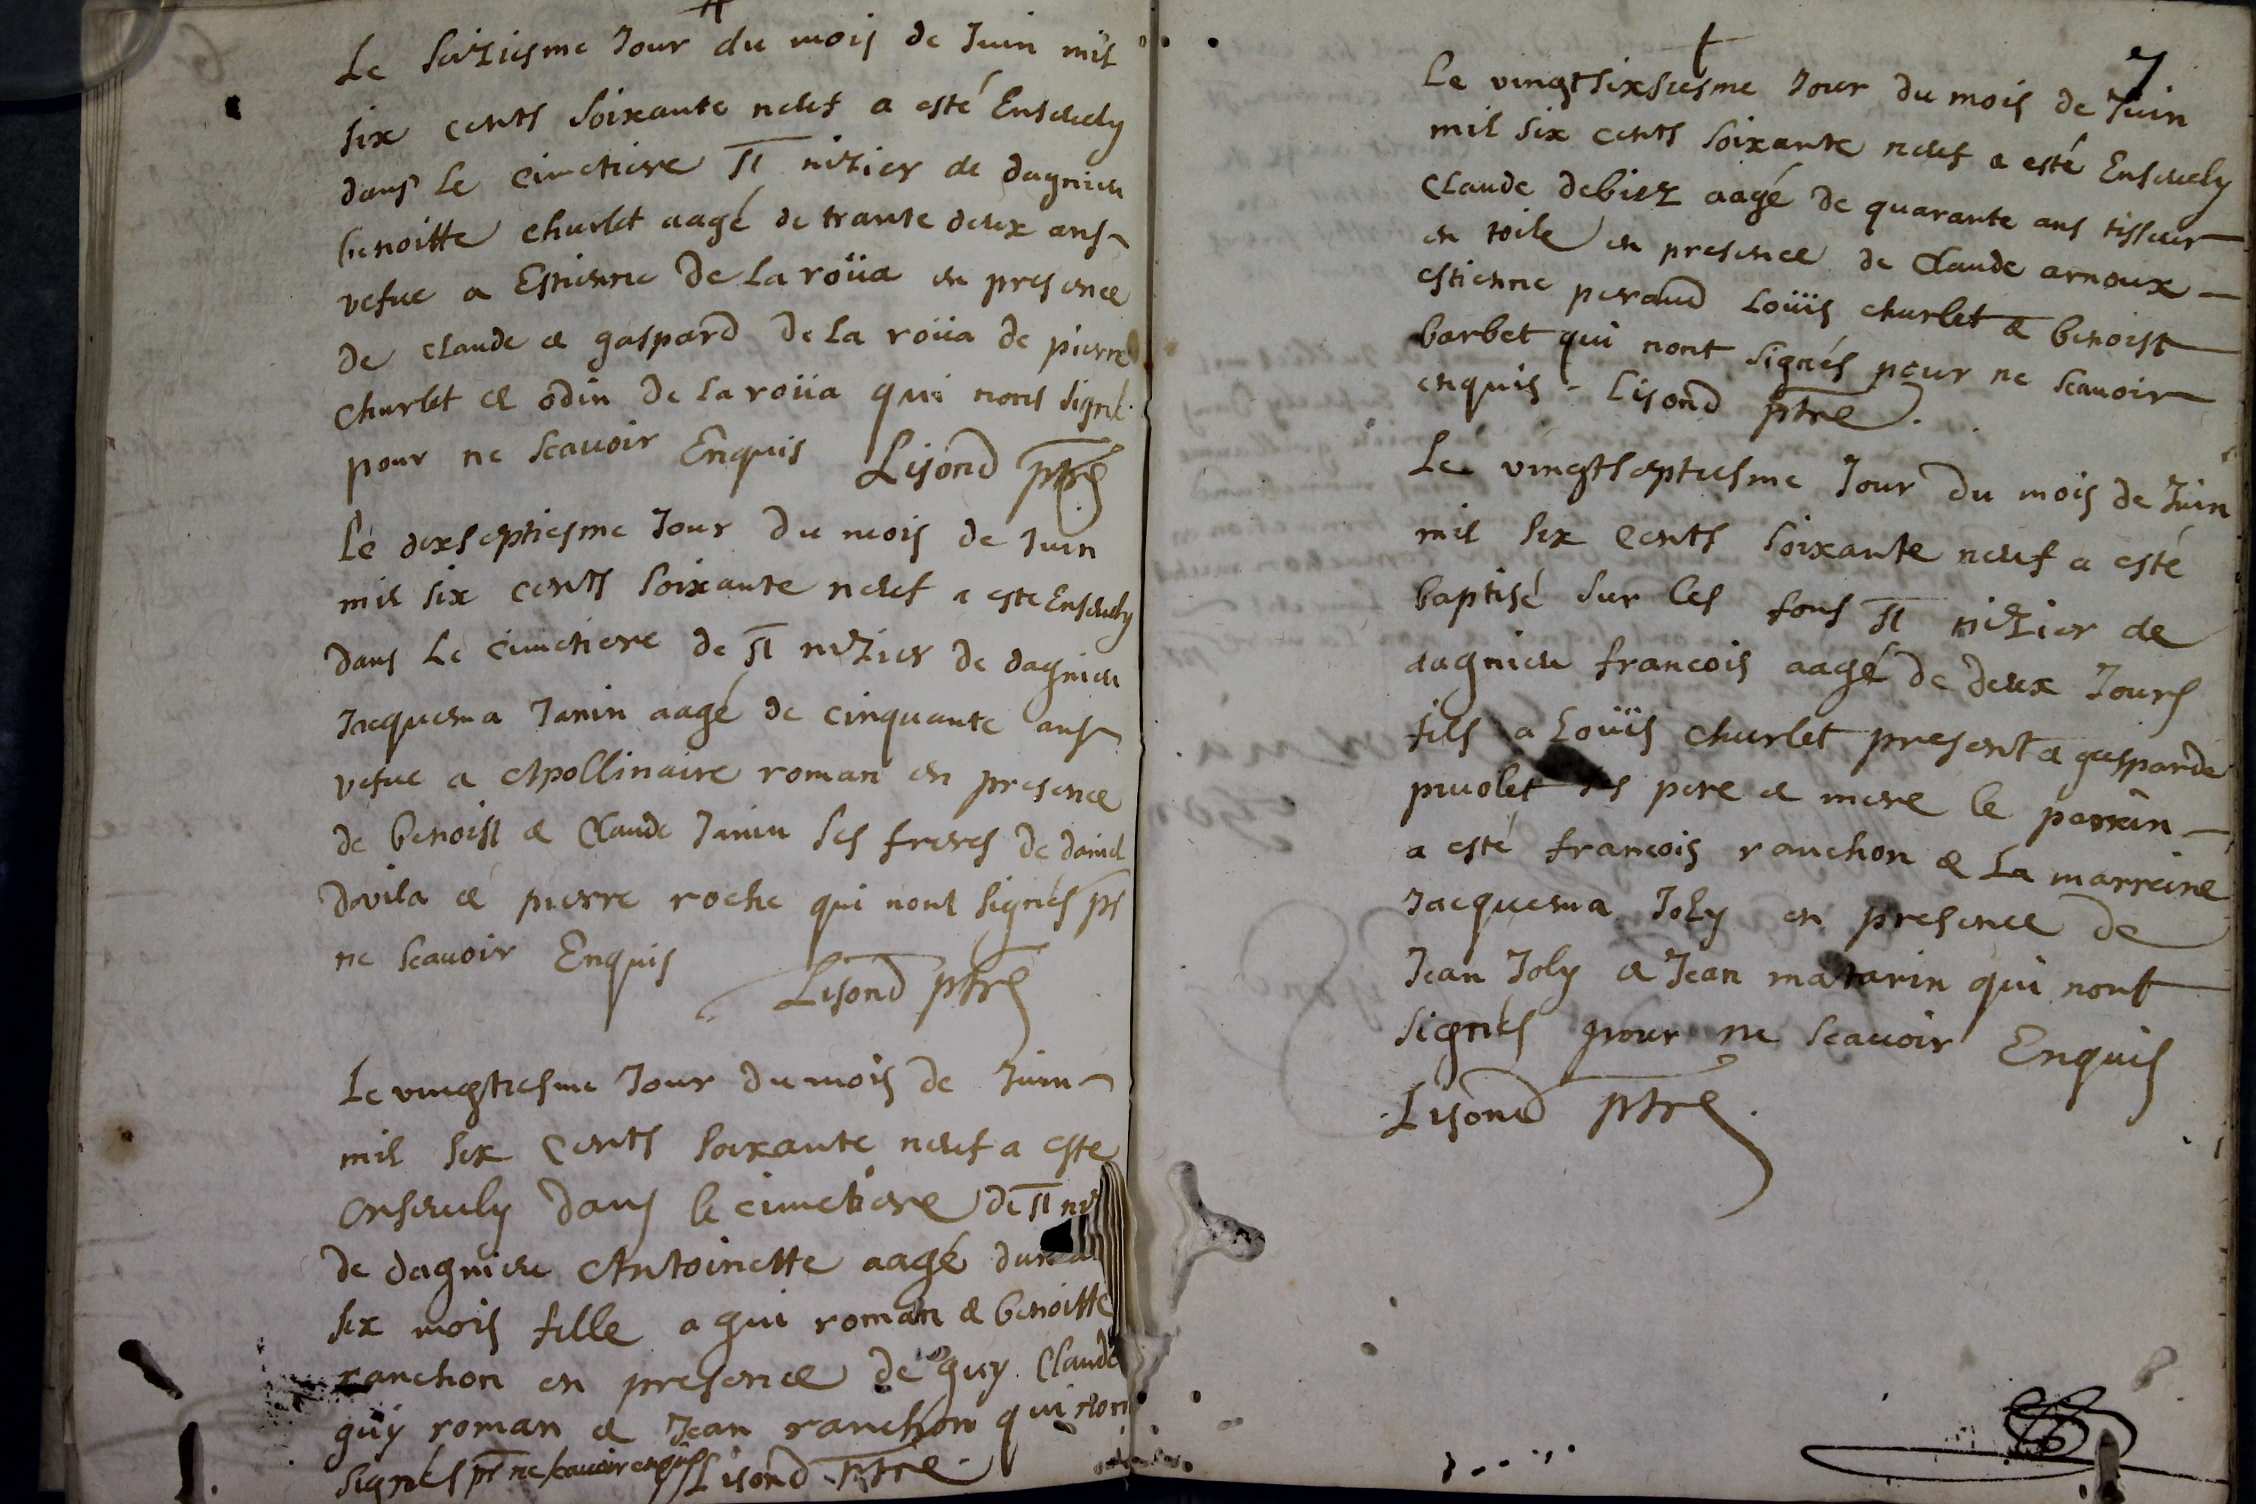 Le seiziesme Jour du mois de Juin mil
six cents soixante neuf a esté Enseuely
dans le cimetiere st nizier de dagnieu
benoitte churlet aagé de trante deux ans
vefue a Estienne De La roüa en presence
de claude & gaspard De La roüa de pierre
churlet & odin De La roüa qui nont signé
pour ne scauoir Enquis Lisond ptre
Le dixseptiesme Jour Du mois de Juin
mil six cents soixante neuf a este Enseuely
dans Le cimetiere de st nizier De dagnieu
Jacquema Janin aagé de cinquante ans
vefue a Apollinaire roman en presence
de benoist & Claude Janin ses freres De daniel
Davila & pierre roche qui nont signés pr
ne scauoir Enquis
Lisond ptre
Le vingtiesme Jour Du mois de Juin
mil six cents soixante neuf a este
enseuely dans le cimetiere de st niz
de dagnieu Antoinette aagé dun an
six mois fille a gui roman & benoitte
ranchon en presence de guy Claude
guy roman & Jean ranchon qui non
signés pr ne scauoir enquis Lisond ptre
7
Le vingtsixsiesme Jour du mois de Juin
mil six cents soixante neuf a esté Enseuely
Claude debiez aagé de quarante ans tisseur
en toile en presence de Claude arnoux
estienne peraud Loüis churlet & benoist
barbet qui nont signés pour ne scauoir
enquis Lisond ptre
Le vingtseptiesme Jour Du mois de Juin
mil six cents soixante neuf a esté
baptisé sur les fons st nizier de
dagnieu francois aagé de deux Jours
fils a Loüis churlet present & gasparde
piuolet ses pere & mere le parrin
a esté francois ranchon & La marreine
Jacquema Joly en presence de
Jean Joly & Jean matarin qui nont
signés pour ne scauoir Enquis
Lisond ptre